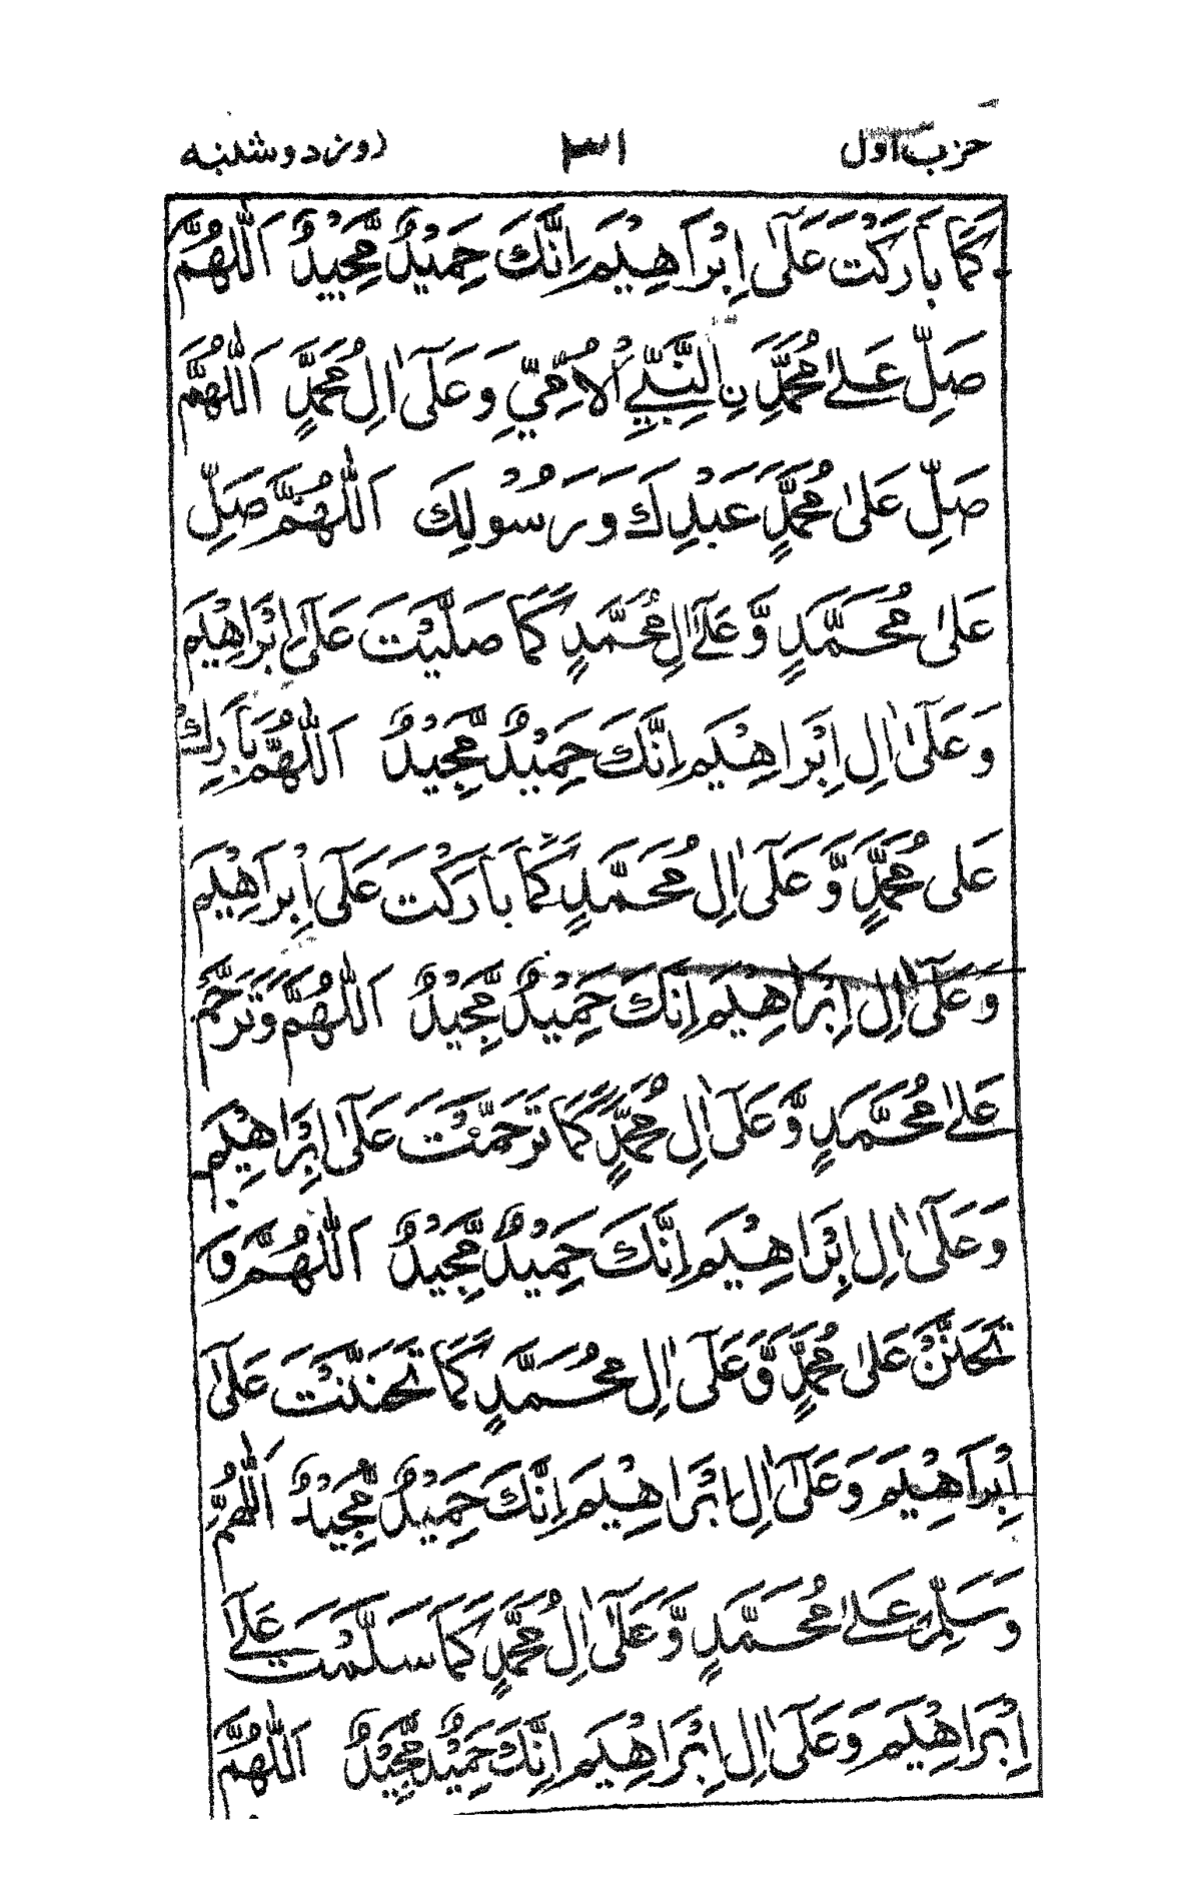 حزب اول ۳۱ روز دوشنبه
كَمَا بَارَكْتَ عَلٰٓى اِبْرَاهِيْمَ اِنَّكَ حَمِيْدٌ مَّجِيْدٌ اَللّٰهُمَّ
صَلِّ عَلٰى مُحَمَّدِ نِ النَّبِيِّ الْاُمِّيِّ وَعَلٰٓى اٰلِ مُحَمَّدٍ اَللّٰهُمَّ
صَلِّ عَلٰى مُحَمَّدٍ عَبْدِكَ وَرَسُوْلِكَ اَللّٰهُمَّ صَلِّ
عَلٰى مُحَمَّدٍ وَّعَلٰٓى اٰلِ مُحَمَّدٍ كَمَا صَلَّيْتَ عَلٰٓى اِبْرَاهِيْمَ
وَعَلٰٓى اٰلِ اِبْرَاهِيْمَ اِنَّكَ حَمِيْدٌ مَّجِيْدٌ اَللّٰهُمَّ بَارِكْ
عَلٰى مُحَمَّدٍ وَّعَلٰٓى اٰلِ مُحَمَّدٍ كَمَا بَارَكْتَ عَلٰٓى اِبْرَاهِيْمَ
وَعَلٰٓى اٰلِ اِبْرَاهِيْمَ اِنَّكَ حَمِيْدٌ مَّجِيْدٌ اَللّٰهُمَّ وَتَرَحَّمْ
عَلٰى مُحَمَّدٍ وَّعَلٰٓى اٰلِ مُحَمَّدٍ كَمَا تَرَحَّمْتَ عَلٰٓى اِبْرَاهِيْمَ
وَعَلٰٓى اٰلِ اِبْرَاهِيْمَ اِنَّكَ حَمِيْدٌ مَّجِيْدٌ اَللّٰهُمَّ وَ
تَحَنَّنْ عَلٰى مُحَمَّدٍ وَّعَلٰٓى اٰلِ مُحَمَّدٍ كَمَا تَحَنَّنْتَ عَلٰٓى
اِبْرَاهِيْمَ وَعَلٰٓى اٰلِ اِبْرَاهِيْمَ اِنَّكَ حَمِيْدٌ مَّجِيْدٌ اَللّٰهُمَّ
وَسَلِّمْ عَلٰى مُحَمَّدٍ وَّعَلٰٓى اٰلِ مُحَمَّدٍ كَمَا سَلَّمْتَ عَلٰٓى
اِبْرَاهِيْمَ وَعَلٰٓى اٰلِ اِبْرَاهِيْمَ اِنَّكَ حَمِيْدٌ مَّجِيْدٌ اَللّٰهُمَّ